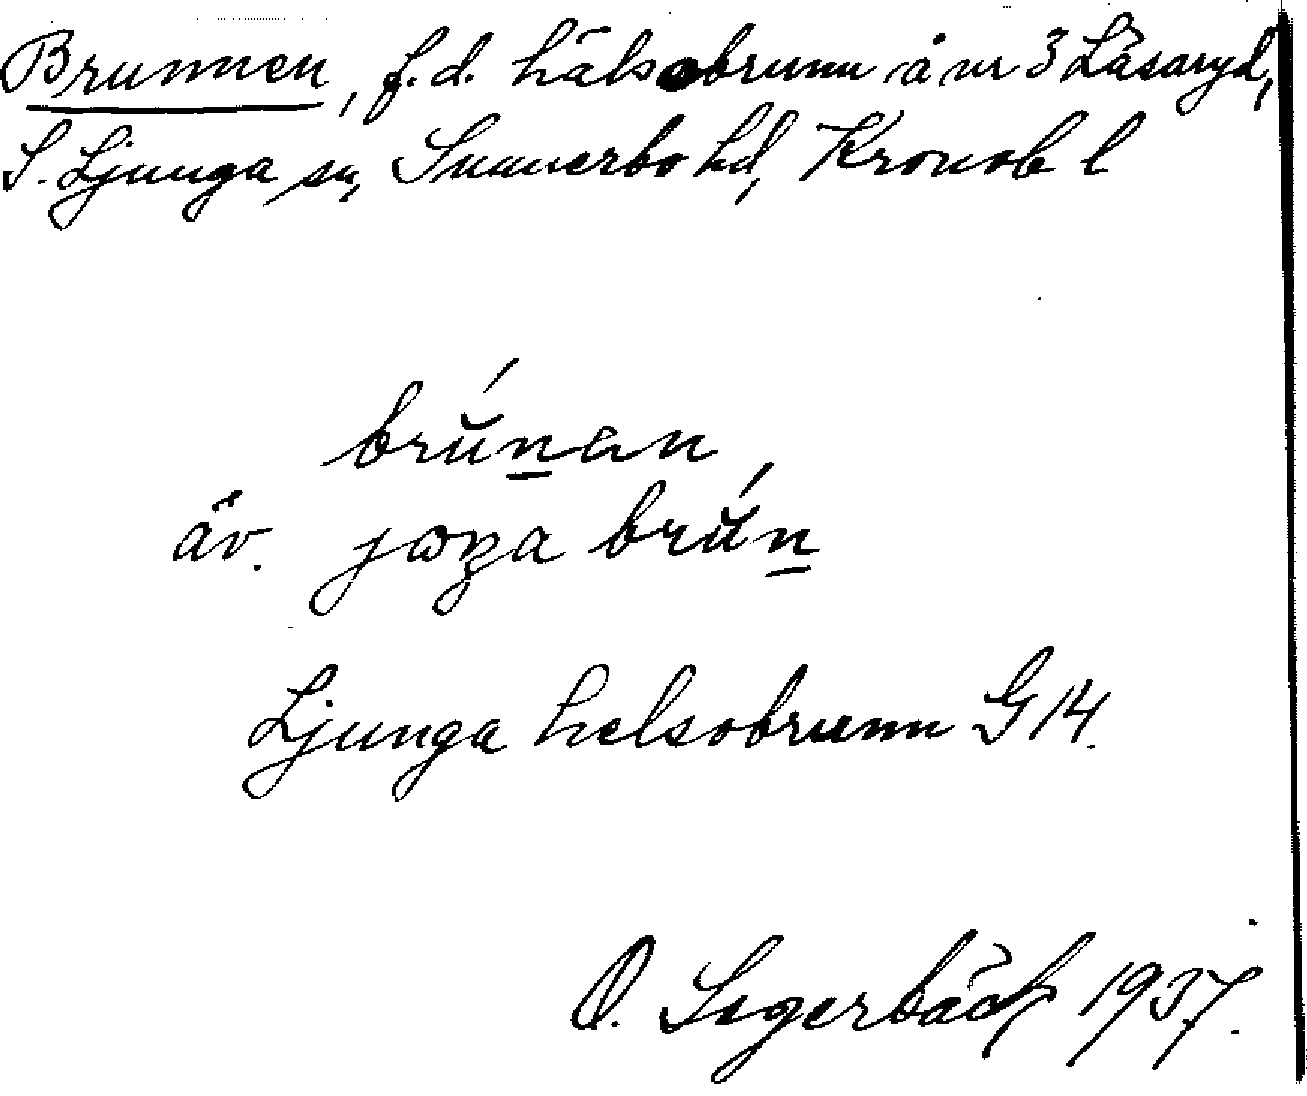 Brunnen, f.d. hälsobrunn å nr 3 Låsaryd,
S. Ljunga sn, Sunnerbo hd, Kronob l
brŭ́n̲an
äv. jɷŋa brŭ́n̲
Ljunga helsobrunn G 14.
O. Segerbäck 1937.